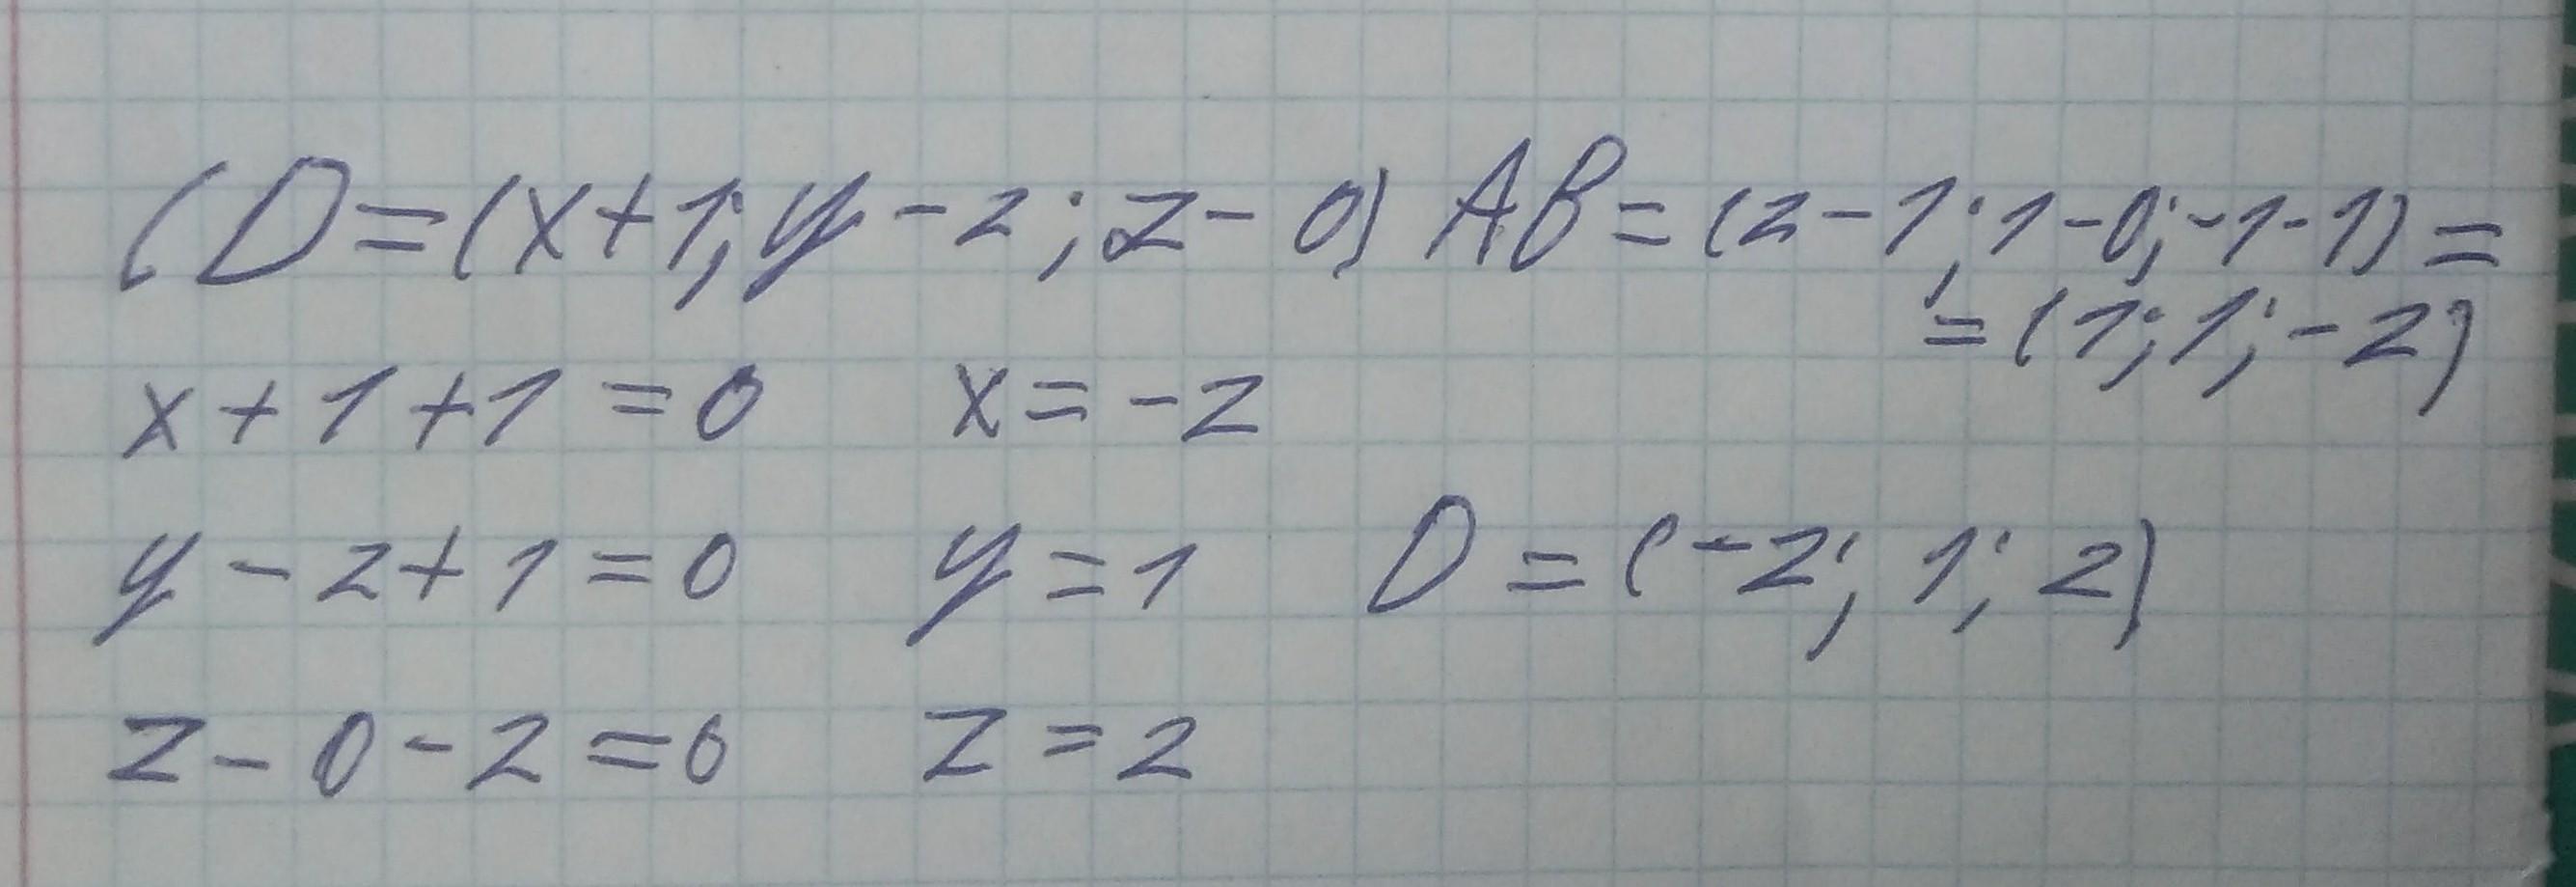 CD=(x+1; y-2; z-0) AB=(2-1; 1-0; -1-1)=
=(1; 1; -2)
x+1+1=0 x=-2
y-2+1=0 y=1 D=(-2; 1; 2)
z-0-2=0 z=2